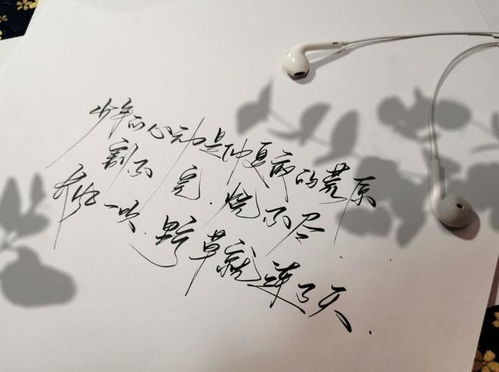 少年的心动是仲夏夜的荒原
割不完.烧不尽.
长风一吹.野草就连了天.